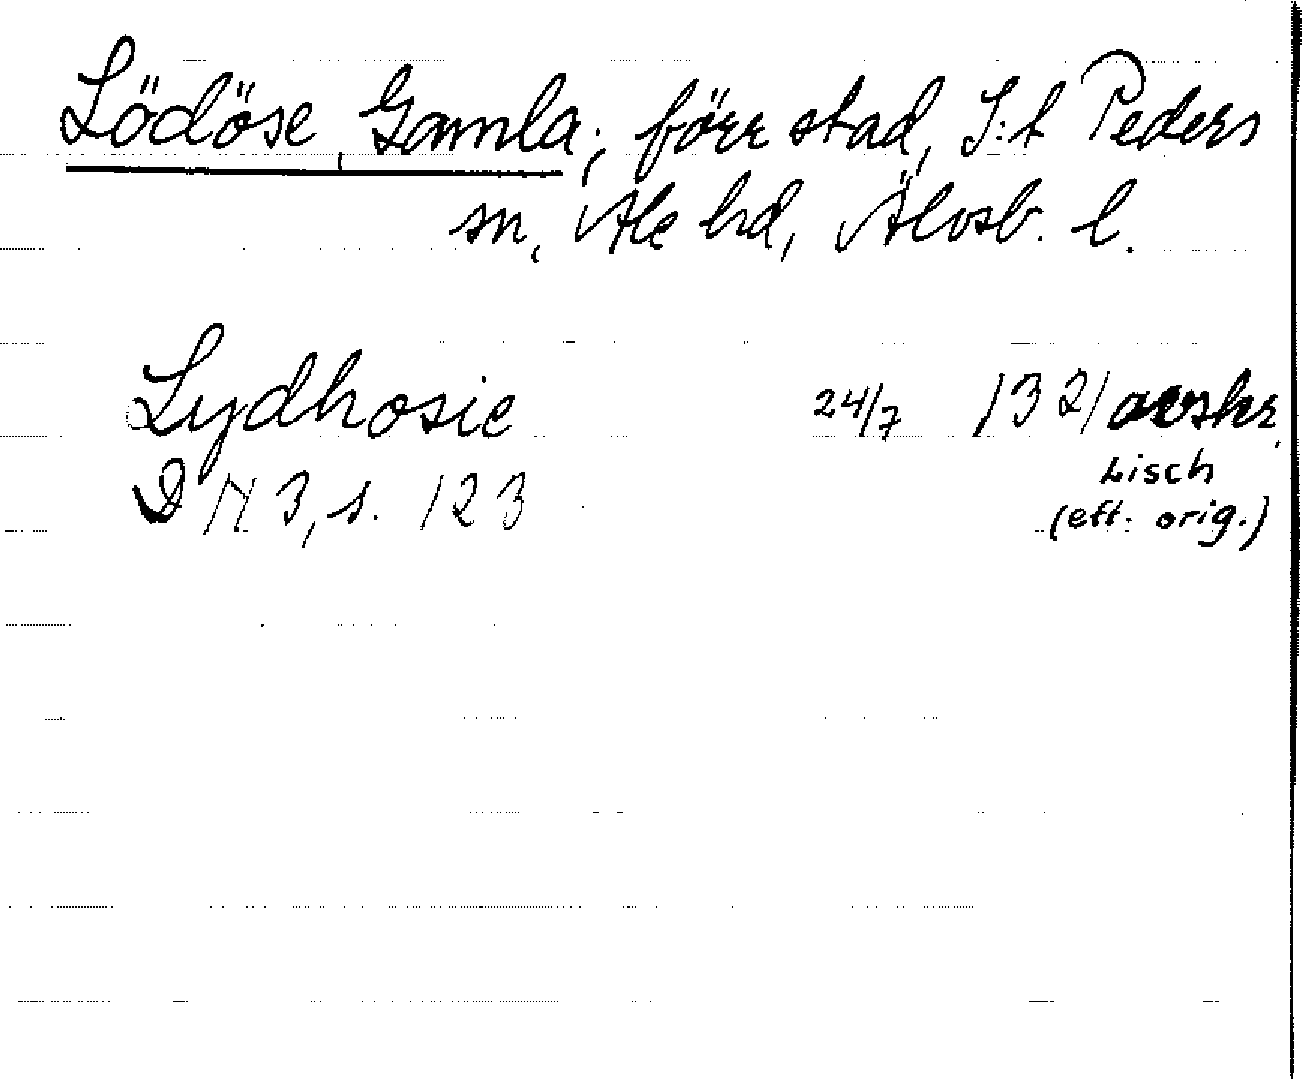 Lödöse, Gamla; förr stad, S:t Peders
sn, Ale hd, Älvsb. l.
Lydhosie 24/7 1321 avskr.
DN 3, s. 123 Lisch
(eft. orig.)